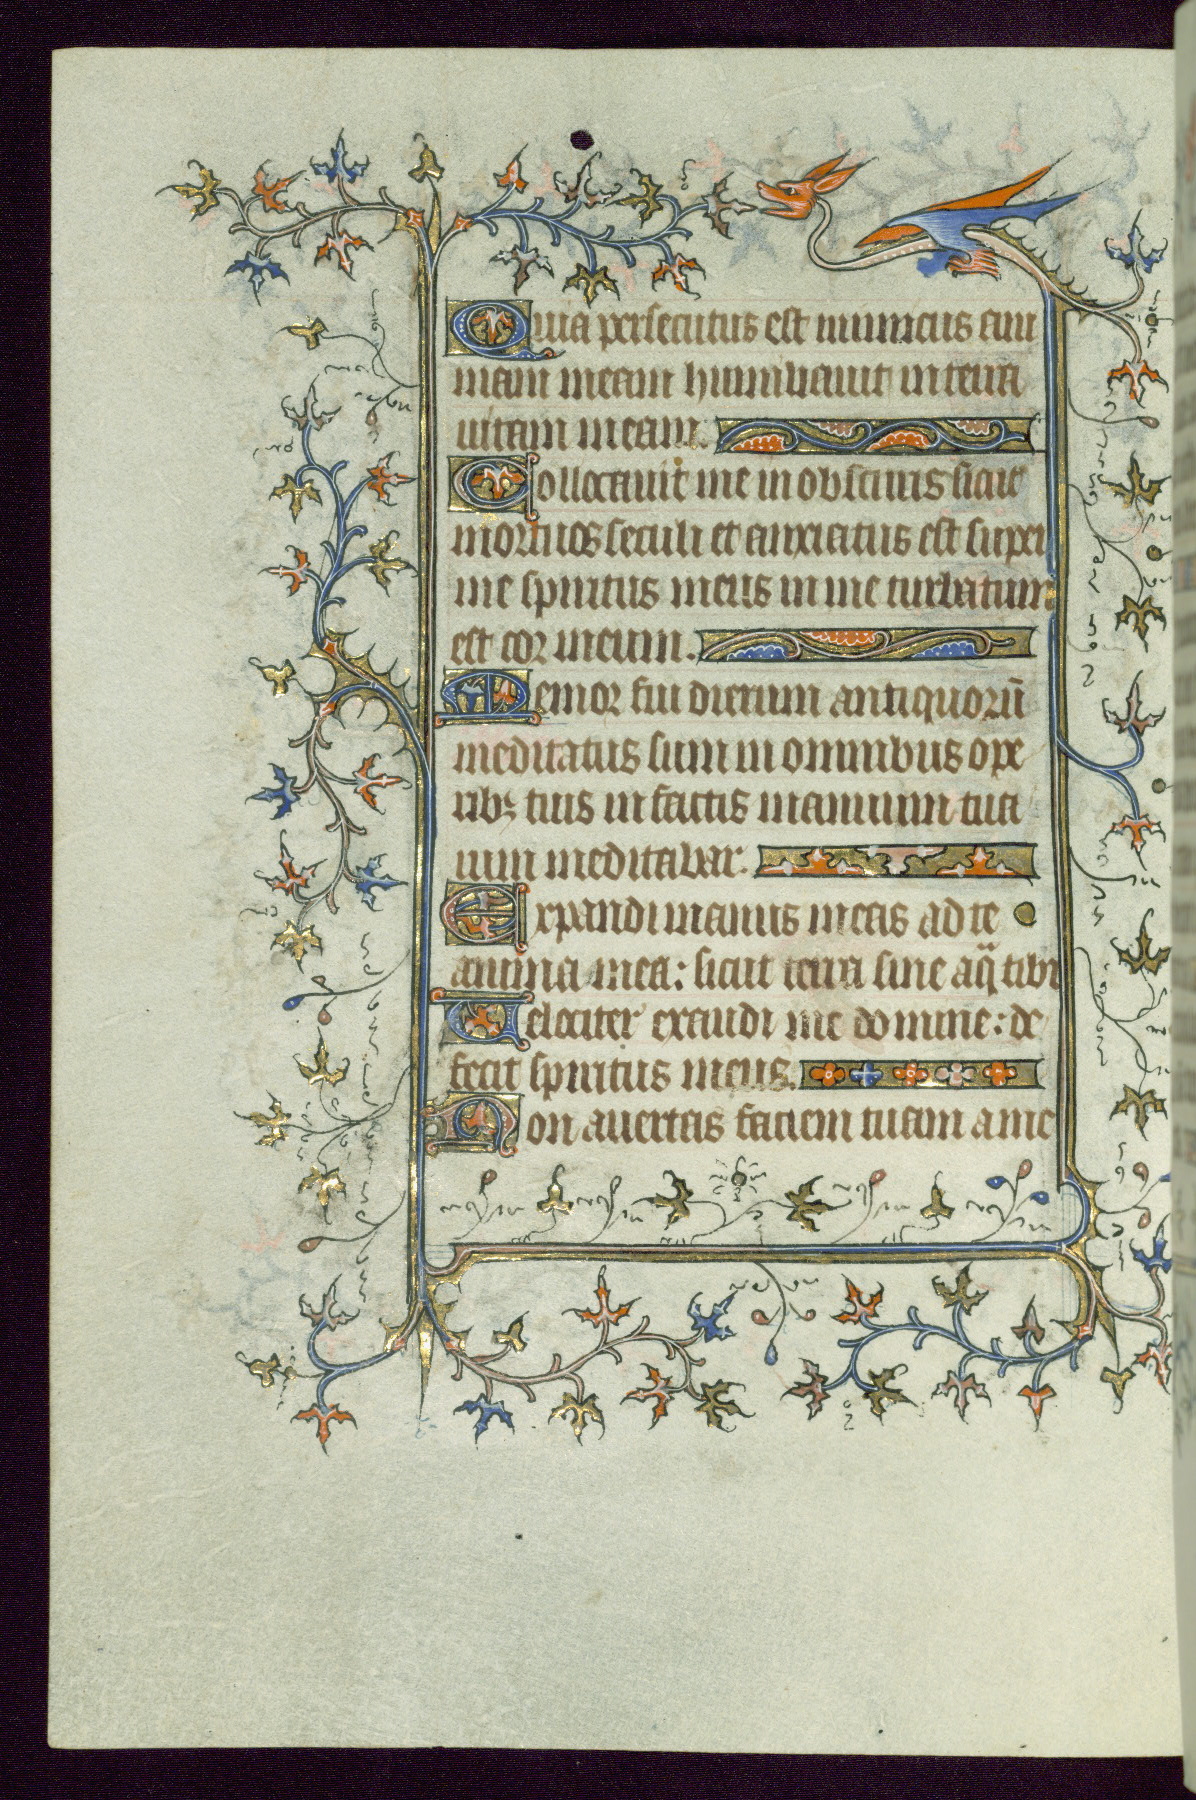 Quia persecutus est inimicus ani
mam meam humiliauit in terra
uitam meam.
Collocauit me in obscuris sicut
mortuos seculi et anxiatus est super
me spiritus meus in me turbatum
est cor meum.
Memor fui dierum antiquorū
meditatus sum in omnibus ope
ribꝫ tuis in factis manuum tua
rum meditabar.
Expandi manus meas ad te
anima mea: sicut terra sine aq̄ tibi
Velociter exaudi me domine: de
fecit spiritus meus.
Non auertas faciem tuam a me